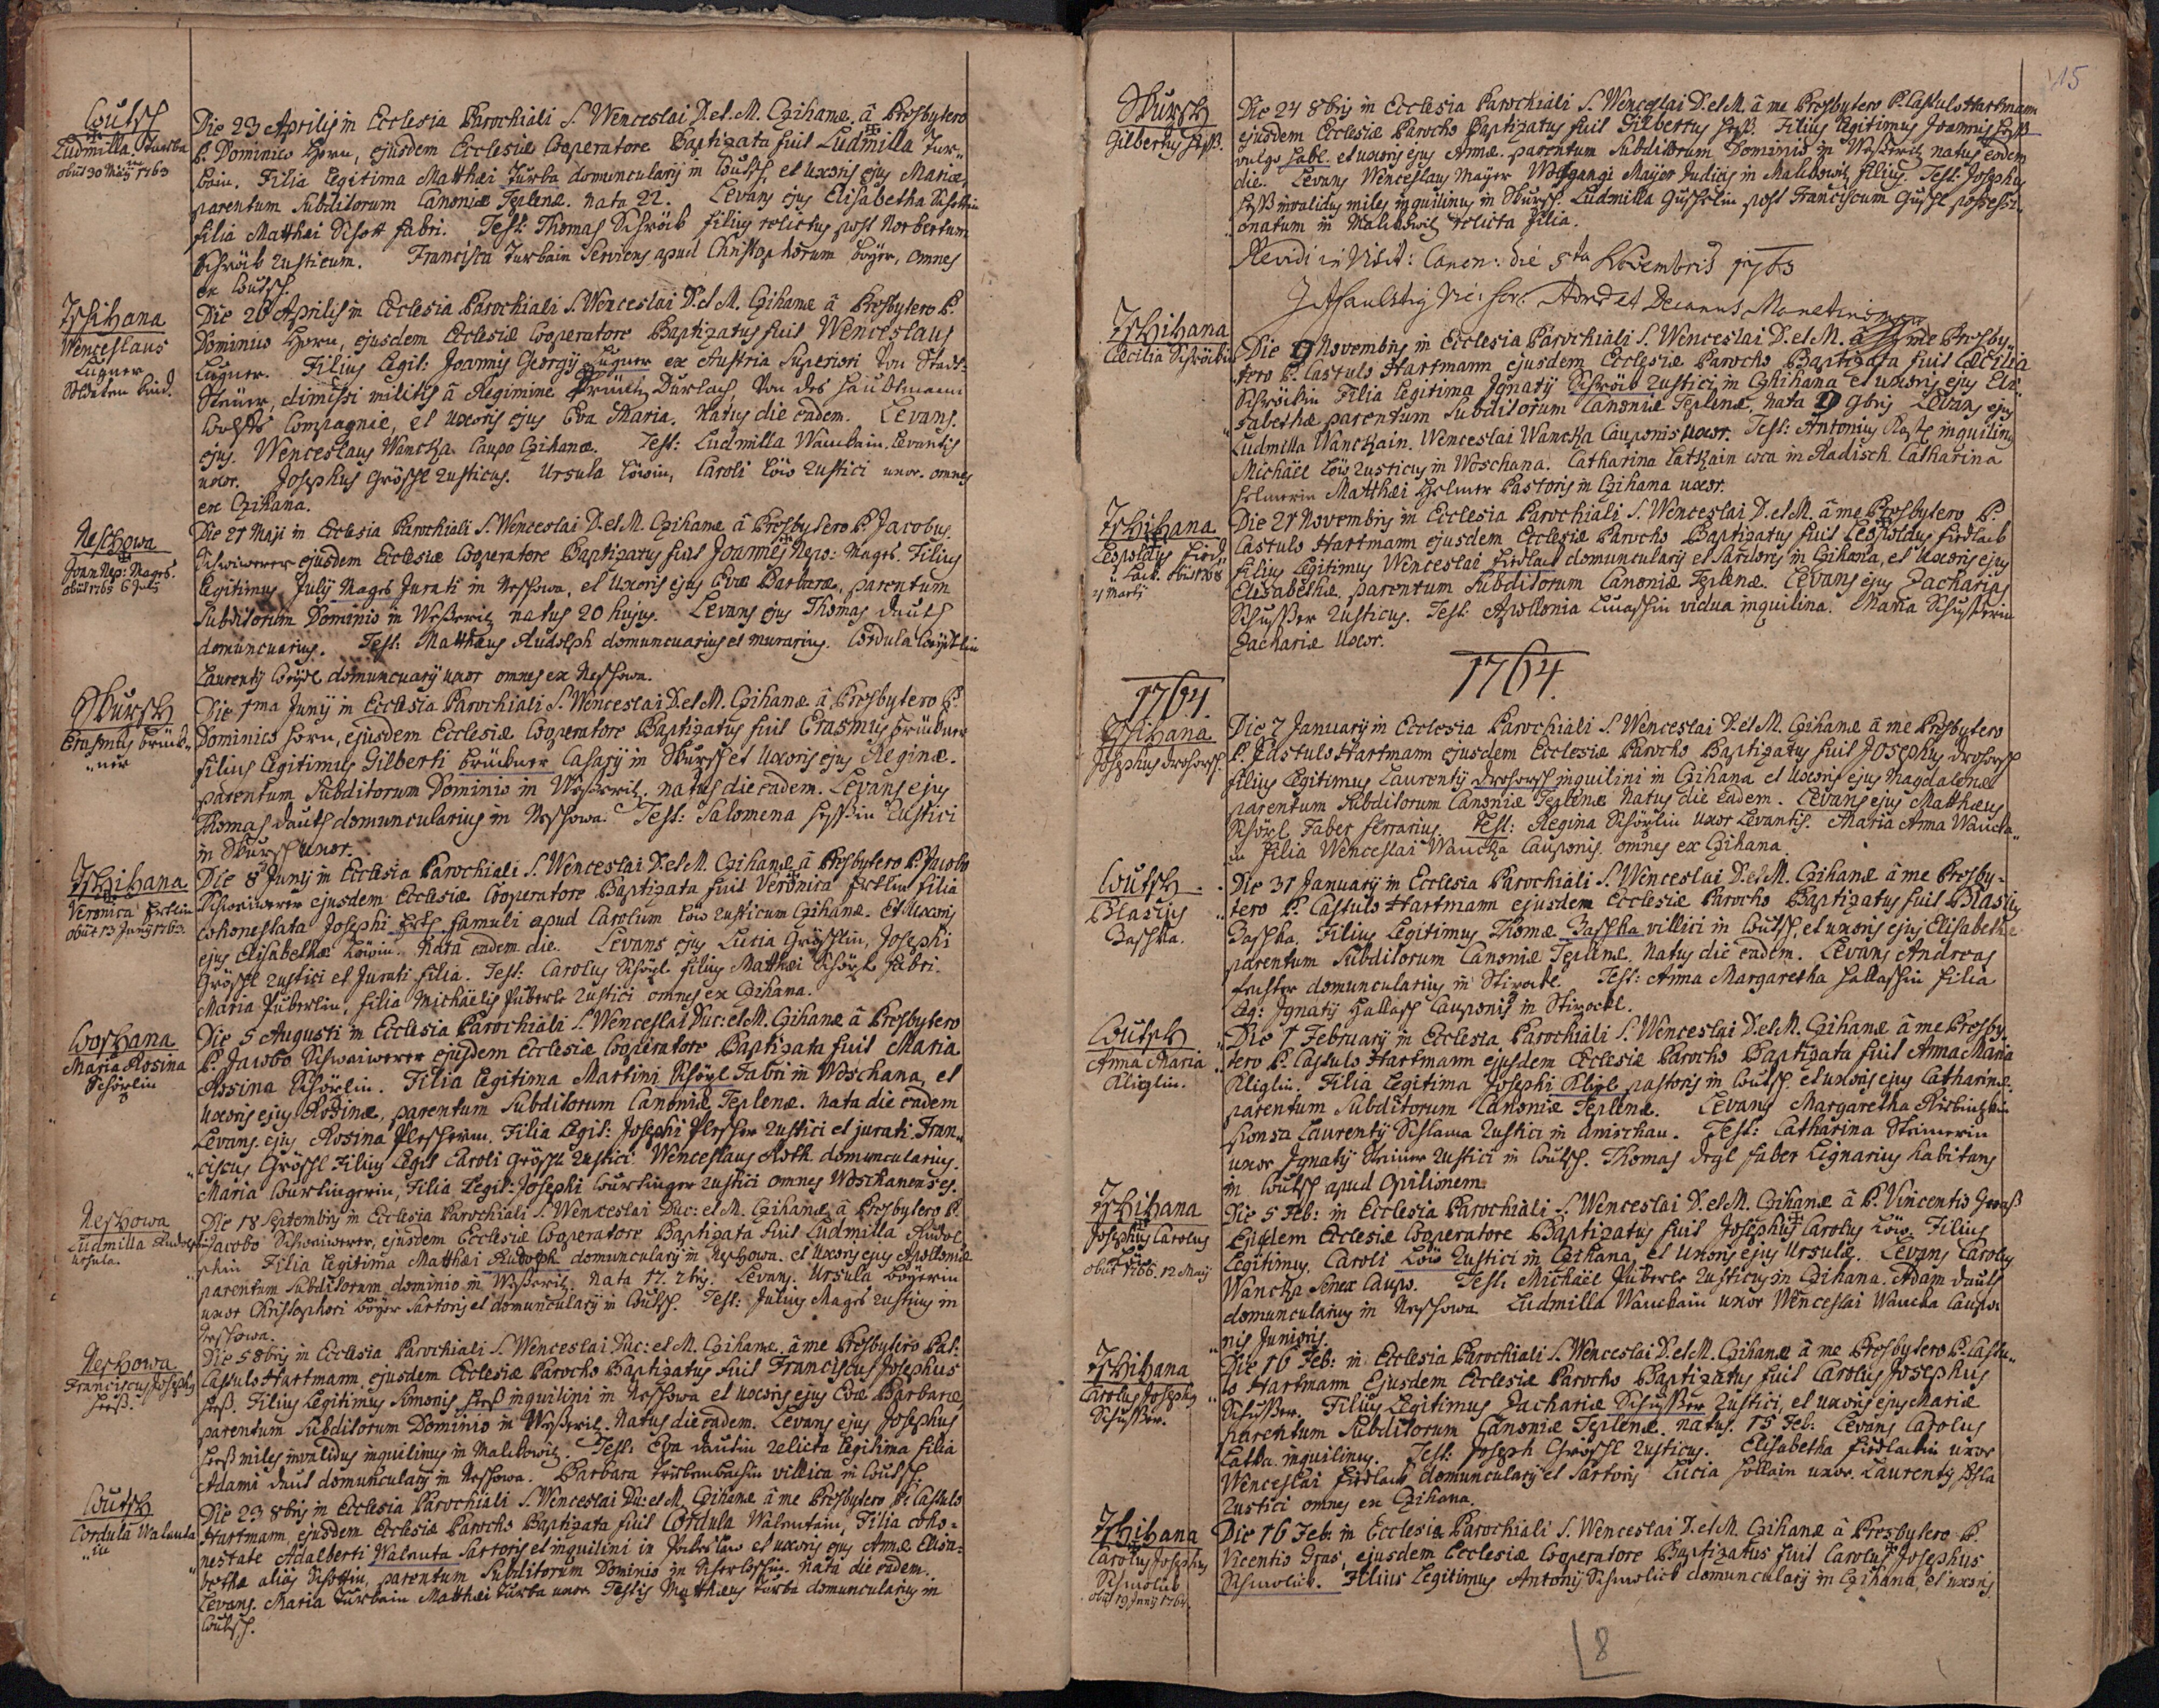 Wutsch
Ludmilla Turba
obiit 30 Maij 1763
Die 23 Aprilis in Ecclesia Parochiali S. Wenceslai D. et M. Czihanæ, â Presbytero
P. Dominico Horn, ejusdem Ecclesiæ Cooperatore Baptizata fuit Ludmilla Tur„
bain. Filia legitima Matthæi Turba domuncularij in Wutsch, et uxoris ejus Mariæ,
parentum Subditorum Canoniæ Teplenæ. nata 22. Levans ejus Elisabetha Schottin
filia Matthæi Schott fabri. Test: Thomas Schröib filius relictus post Norbertum
Schröib rusticum. Francisca Turbain Serviens apud Christophorum Böÿer, omnes
ex Wutsch.
Tschihana
Wenceslaus
Lugner
Soldaten Kind.
Die 28 Aprilis in Ecclesia Parochiali S. Wenceslai D. et M. Czihanæ â Presbytero P.
Dominico Horn, ejusdem Ecclesiæ Cooperatore Baptizatus fuit Wenceslaus
Lugner. Filius Legit: Joannis Georgij Lugner ex Austria Superiori von Stadt-
Steuer, dimissi militis â Regimine Durlach, von des Haubtmann
Wolfts Compagnie, et uxoris ejus Eva Maria. natus die eadem. Levans
ejus. Wenceslaus Wanczka Caupo Czihanæ. Test: Ludmilla Wanckain. Levantis
uxor. Josephus Grössl rusticus. Ursula Löwin, Caroli Löw rustici uxor. omnes
ex Czihana.
Neschowa
Joan Nep: Magrs.
obiit 1765 6 Julij
Die 21 Maji in Ecclesia Parochiali S. Wenceslai D. et M. Czihanæ â Presbytero P. Jacobo
Schwiwerer ejusdem Ecclesiæ Cooperatore Baptizatus fuit Joannes Nepo: Magrs. Filius
Legitimus Julij Magrs Jurati in Neschowa, et Uxoris ejus Evæ Barbaræ, parentum
Subditorum Dominio in Weßeritz natus 20 hujus. Levans ejus Thomas Dauth
domuncuarius. Test: Matthæus Rudolph domuncuarius et murarius. Cordula
Laurentij domuncuarij uxor omnes ex Neschowa.
Skursch
Erasmus Brück„
„ner
Die 1ma Junij in Ecclesia Parochiali S. Wenceslai D. et M. Czihanæ â Presbytero P.
Dominico Horn, ejusdem Ecclesiæ Cooperatore Baptizatus fuit Erasmus Brückner
filius Legitimus Gilberti Brückner Casarij in Skursch et Uxoris ejus Reginæ.
parentum Subditorum Dominio in Weßeritz. natus die eadem. Levans ejus
Thomas Dauth domuncularius in Neschowa. Test: Salomena Heßin rustici
in Skursch uxor.
Tschihana
Veronica Ertlin
obiit 13 Junij 1763.
Die 8 Junij in Ecclesia Parochiali S. Wenceslai D. et M. Czihanæ â Presbytero P. Jacobo
Schwiwerer ejusdem Ecclesiæ Cooperatore Baptizata fuit Veronica Ertlin filia
cohonestata Josephi Ertl famuli apud Carolum Löw rusticum Czihanæ. Et Uxoris
ejus Elisabethæ Löwin. Nata eadem die. Levans ejus Lucia Grösslin, Josephi
Grössl rustici et Jurati filia. Test: Carolus Schörl filius Matthæi Schörl fabri.
Maria Püberlin, filia Michäelis Püberle rustici omnes ex Czihana.
Woschana
Maria Rosina
Schörlin
Die 5 Augusti in Ecclesia Parochiali S. Wenceslai Duc: et M. Czihanæ â Presbytero
P. Jacobo Schwaiwerer ejusdem Ecclesiæ Cooperatore Baptizata fuit Maria
Rosina Schörlin. Filia legitima Martini Schörl Fabri in Woschana, et
Uxoris ejus Rosinæ, parentum Subditorum Canoniæ Teplenæ. Nata die eadem
Levans ejus Rosina Plescherin, Filia Legit: Josephi Plescher rustici et jurati. Fran„
„ciscus Grössl Filius Legit Caroli Grössl rustici Wenceslaus Roth domuncularius.
Maria Wurlingerin, Filia Legit: Josephi Wurlinger rustici omnes Woschanenses.
Neschowa
Ludmilla
Ursula.
Die 18 Septembris in Ecclesia Parochiali S. Wenceslai Duc: et M. Czihanæ â Presbytero P.
Jacobo Schwaiwerer, ejusdem Ecclesiæ Cooperatore Baptizata fuit Ludmilla Rudol
phin Filia legitima Matthæi Rudolph domuncularij in Neschowa. et Uxoris ejus Apolloniæ
parentum Subditorum dominio in Weßeritz. Nata 17. 7bris. Levans. Ursula Böÿerin
uxor Christophori Böÿer Sartoris et domuncularij in Wutsch. Test: Julius Magrs rusticus in
Neschowa.
Neschowa
Franciscus Josephus
Heeß.
Die 5 8bris in Ecclesia Parochiali S. Wenceslai Duc: et M. Czihanæ. â me Presbytero Pat:
Castulo Hartmann, ejusdem Ecclesiæ Parocho Baptizatus fuit Franciscus Josephus
Heeß. Filius Legitimus Simonis Heeß inquilini in Neschowa et Uxoris ejus Evæ Barbaræ,
parentum Subditorum Dominio in Weßeritz. Natus die eadem. Levans ejus Josephus
Heeß miles invalidus inquilinus in Malkowitz. Test: Eva Dautin relicta legitima filia
Adami Daut domuncularij in Neschowa. Barbara villica in Wutsch.
Wutsch
Cordula Walenta
„in
Die 23 8bris in Ecclesia Parochiali S. Wenceslai Du: et M. Czihanæ â me Presbytero P. Castulo
Hartmann, ejusdem Ecclesiæ Parocho Baptizata fuit Cordula Walentain, Filia coho-
nestate Adalberti Walenta Sartoris et inquilini in et uxoris ejus Annæ Elisa-
bethæ alias Schottin, parentum Subditorum Dominio in Nata die eadem.
Levans. Maria Turbain Matthæi Turba uxor. Testis Matthæus Turba domuncularius in
Wutsch.
15
Skursch
Gilbertus Heß.
Die 24 8bris in Ecclesia Parochiali S. Wenceslai D. et M. â me Presbytero P. Castulo Hartmann
ejusdem Ecclesiæ Parocho Baptizatus fuit Gilbertus Heß. Filius legitimus Joannis Heß
vulgo et uxoris ejus Annæ. parentum Subditorum Dominio in Weßeritz natus eadem
die. Levans Wenceslaus Mayer Wolfgangi Maÿer Judicis in Malkowitz filius. Test: Josephus
Heß invalidus miles inquilinus in Skursch. Ludmilla post Franciscum possessi„
„onatum in Malkowitz relicta filia.
Revidi in Visit: Canon: die 5ta Novembris 1763
Vic: for: et Decanus Manetinensis
Tschihana
Cæcilia Schröibin
Die 9 Novembris in Ecclesia Parochiali S. Wenceslai D. et M. â me Presby„
„tero P. Castulo Hartmann ejusdem Ecclesiæ Parocho Baptizata fuit Cæcilia
Schröibin Filia legitima Ignatij Schröib rustici in Czihana et uxoris ejus Eli„
„sabethæ parentum Subditorum Canoniæ Teplenæ, nata 9 9bris Levans ejus
Ludmilla Wanckain. Wenceslai Wancka Cauponis uxor. Test: Antonius inquilinus
Michäel Löw rusticus in Woschana. Catharina Latkain in Radisch. Catharina
Helmerin Matthæi Helmer Pastoris in Czihana uxor.
Tschihana
Leopoldus
21 Martij
Die 21 Novembris in Ecclesia Parochiali S. Wenceslai D. et M. â me Presbytero P.
Castulo Hartmann ejusdem Ecclesiæ Parocho Baptizatus fuit Leopoldus Firdlaib
filius Legitimus Wenceslai Firdlaib domuncularij et Sartoris in Czihana, et Uxoris ejus
Elisabethæ. parentum Subditorum Canoniæ Teplenæ. Levans ejus Zacharias
Schusßer rusticus. Test: Apollonia vidua inquilina. Maria Schusserin
Zachariæ Uxor.
1764.
1764.
Tschihana
Josephus Droßorsch.
Die 7 Januarij in Ecclesia Parochiali S. Wenceslai D. et M. Czihanæ â me Presbytero
P. Castulo Hartmann ejusdem Ecclesiæ Parocho Baptizatus fuit Josephus
filius Legitimus Laurentij inquilini in Czihana et Uxoris ejus Magdalenæ
parentum Subditorum Canoniæ Teplenæ Natus die eadem. Levans ejus Matthæus
Schörl Faber ferrarius. Test: Regina Schörlin uxor Levantis. Maria Anna Wancka„
„in filia Wenceslai Wancka Cauponis. omnes ex Czihana.
Wutsch
Blasius
Baschka.
Die 31 Januarij in Ecclesia Parochiali S. Wenceslai D. et M. Czihanæ â me Presby-
„tero P. Castulo Hartmann ejusdem Ecclesiæ Parocho Baptizatus fuit Blasius
Baschka. Filius Legitimus Thomæ Baschka villici in Wutsch, et uxoris ejus Elisabethæ
parentum Subditorum Canoniæ Teplenæ. Natus die eadem. Levans Andreas
domuncularius in Test: Anna Margaretha Hallaschin filia
Leg: Ignatij Hallasch Cauponis in
Wutsch
Anna Maria
Kliglin.
Die 7 Februarij in Ecclesia Parochiali S. Wenceslai D. et M. Czihanæ â me Presby„
„tero P. Castulo Hartmann ejusdem Ecclesiæ Parocho Baptizata fuit Anna Maria
Kliglin. Filia Legitima Josephi Kligl pastoris in Wutsch. et uxoris ejus Catharinæ.
parentum Subditorum Canoniæ Teplenæ. Levans Margaretha
sponsa Laurentij rustici in Test: Catharina Steinerin
uxor Ignatij Steiner rustici in Wutsch. Thomas faber Lignarius habitans
in Wutsch apud Opilionem.
Tschihana
Josephus Carolus
Löw
obiit 1766. 12 Maij
Die 5 Feb: in Ecclesia Parochiali S. Wenceslai D. et M. Czihanæ â P. Vincentio Graß
Eiusdem Ecclesiæ Cooperatore Baptizatus fuit Josephus Carolus Löw. Filius
Legitimus. Caroli Löw Rustici in Czihana, et Uxoris ejus Ursulæ. Levans Carolus
Wancka Senex Caupo. Test: Michäel Püberle rusticus in Czihana. Adam Daut
domuncularius in Neschowa Ludmilla Wanckain uxor Wenceslai Wancka Caupo„
„nis Junioris.
Tschihana
Carolus Josephus
Schusßer.
Die 16 Feb: in Ecclesia Parochiali S. Wenceslai D. et M. Czihanæ â me Presbytero P. Castu„
„lo Hartmann Ejusdem Ecclesiæ Parocho Baptizatus fuit Carolus Josephus
Schusßer. Filius Legitimus Zachariæ Schusßer rustici, et uxoris ejus Mariæ
parentum Subditorum Canoniæ Teplenæ. natus. 15 Feb: Levans Carolus
Latka. inquilinus. Test: Joseph Grössl rusticus. Elisabetha Firdlaibin uxor
Wenceslai Firdlaib domuncularij et Sartoris Lucia Hollain uxor. Laurentij Holla
rustici omnes ex Czihana.
Tschihana
Carolus Josephus
Schmolick
obiit 19 Junij 1764.
Die 16 Feb: in Ecclesia Parochiali S. Wenceslai D. et M. Czihanæ â Presbytero P.
Vicentio Gras, ejusdem Ecclesiæ Cooperatore Baptizatus fuit Carolus Josephus
Schmolick. Filius Legitimus Antonij Schmolick domuncularij in Czihana, et uxoris
8